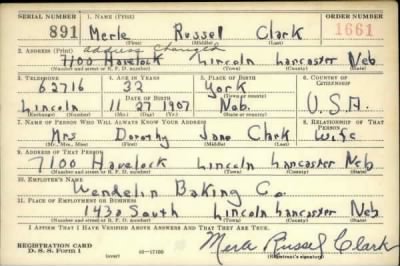 SERIAL NUMBER 1. NAME (Print) ORDER NUMBER
891 Merle Russel Clark 1661
(First) (Middle) (Last)
2. ADDRESS (Print) address changed
7100 Havelock Lincoln Lancaster Neb
(Number and street or R. F. D. number) (Town) (County) (State)
3. TELEPHONE 4. AGE IN YEARS 5. PLACE OF BIRTH 6. COUNTRY OF CITIZENSHIP
62716 33 York
DATE OF BIRTH (Town or county)
Lincoln 11 27 1907 Neb. U.S.A.
(Exchange) (Number) (Mo.) (Day) (Yr.) (State or country)
7. NAME OF PERSON WHO WILL ALWAYS KNOW YOUR ADDRESS 8. RELATIONSHIP OF THAT PERSON
Mrs Dorothy Jane Clark Wife
(Mr., Mrs., Miss) (First) (Middle) (Last)
9. ADDRESS OF THAT PERSON
7100 Havelock Lincoln Lancaster Neb
(Number and street or R. F. D. number) (Town) (County) (State)
10. EMPLOYER'S NAME
Wendelin Baking Co.
11. PLACE OF EMPLOYMENT OR BUSINESS
1430 South Lincoln Lancaster Neb
(Number and street or R. F. D. number) (Town) (County) (State)
I AFFIRM THAT I HAVE VERIFIED ABOVE ANSWERS AND THAT THEY ARE TRUE.
REGISTRATION CARD
D. S. S. FORM 1 (over) 16—17105 Merle Russel Clark
(Registrant's signature)